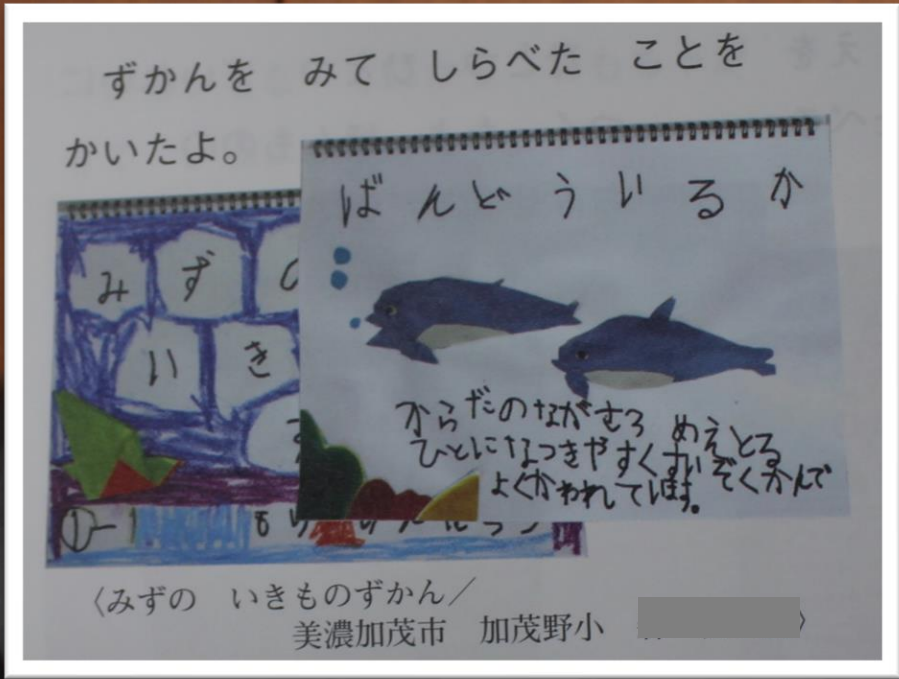 ずかんを みて しらべた ことを
かいたよ。
ばんどういるか
みず
いき
①-1
からだのながさ3 めえとる
ひとになつきやすくすいぞくかんで
よくかわれています。
〈みずの いきものずかん/
美濃加茂市 加茂野小